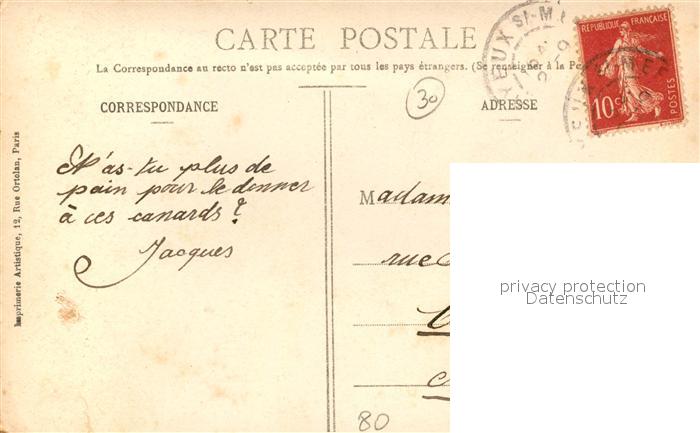 CARTE POSTALE
La Correspondance au recto n'est pas acceptée par tous les pays étrangers. (Se renseigner à la
CORRESPONDANCE
30
ADRESSE
RÉPUBLIQUE FRANÇAISE
10c
POSTES
N'as-tu plus de
pain pour le donner
à ces canards?
Jacques
Madam
rue
privacy protection
Datenschutz
80
Imprimerie Artistique, 12, Rue Ortolan, Paris